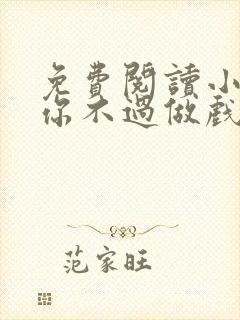 免費閱讀小
你不過做戲
范家旺